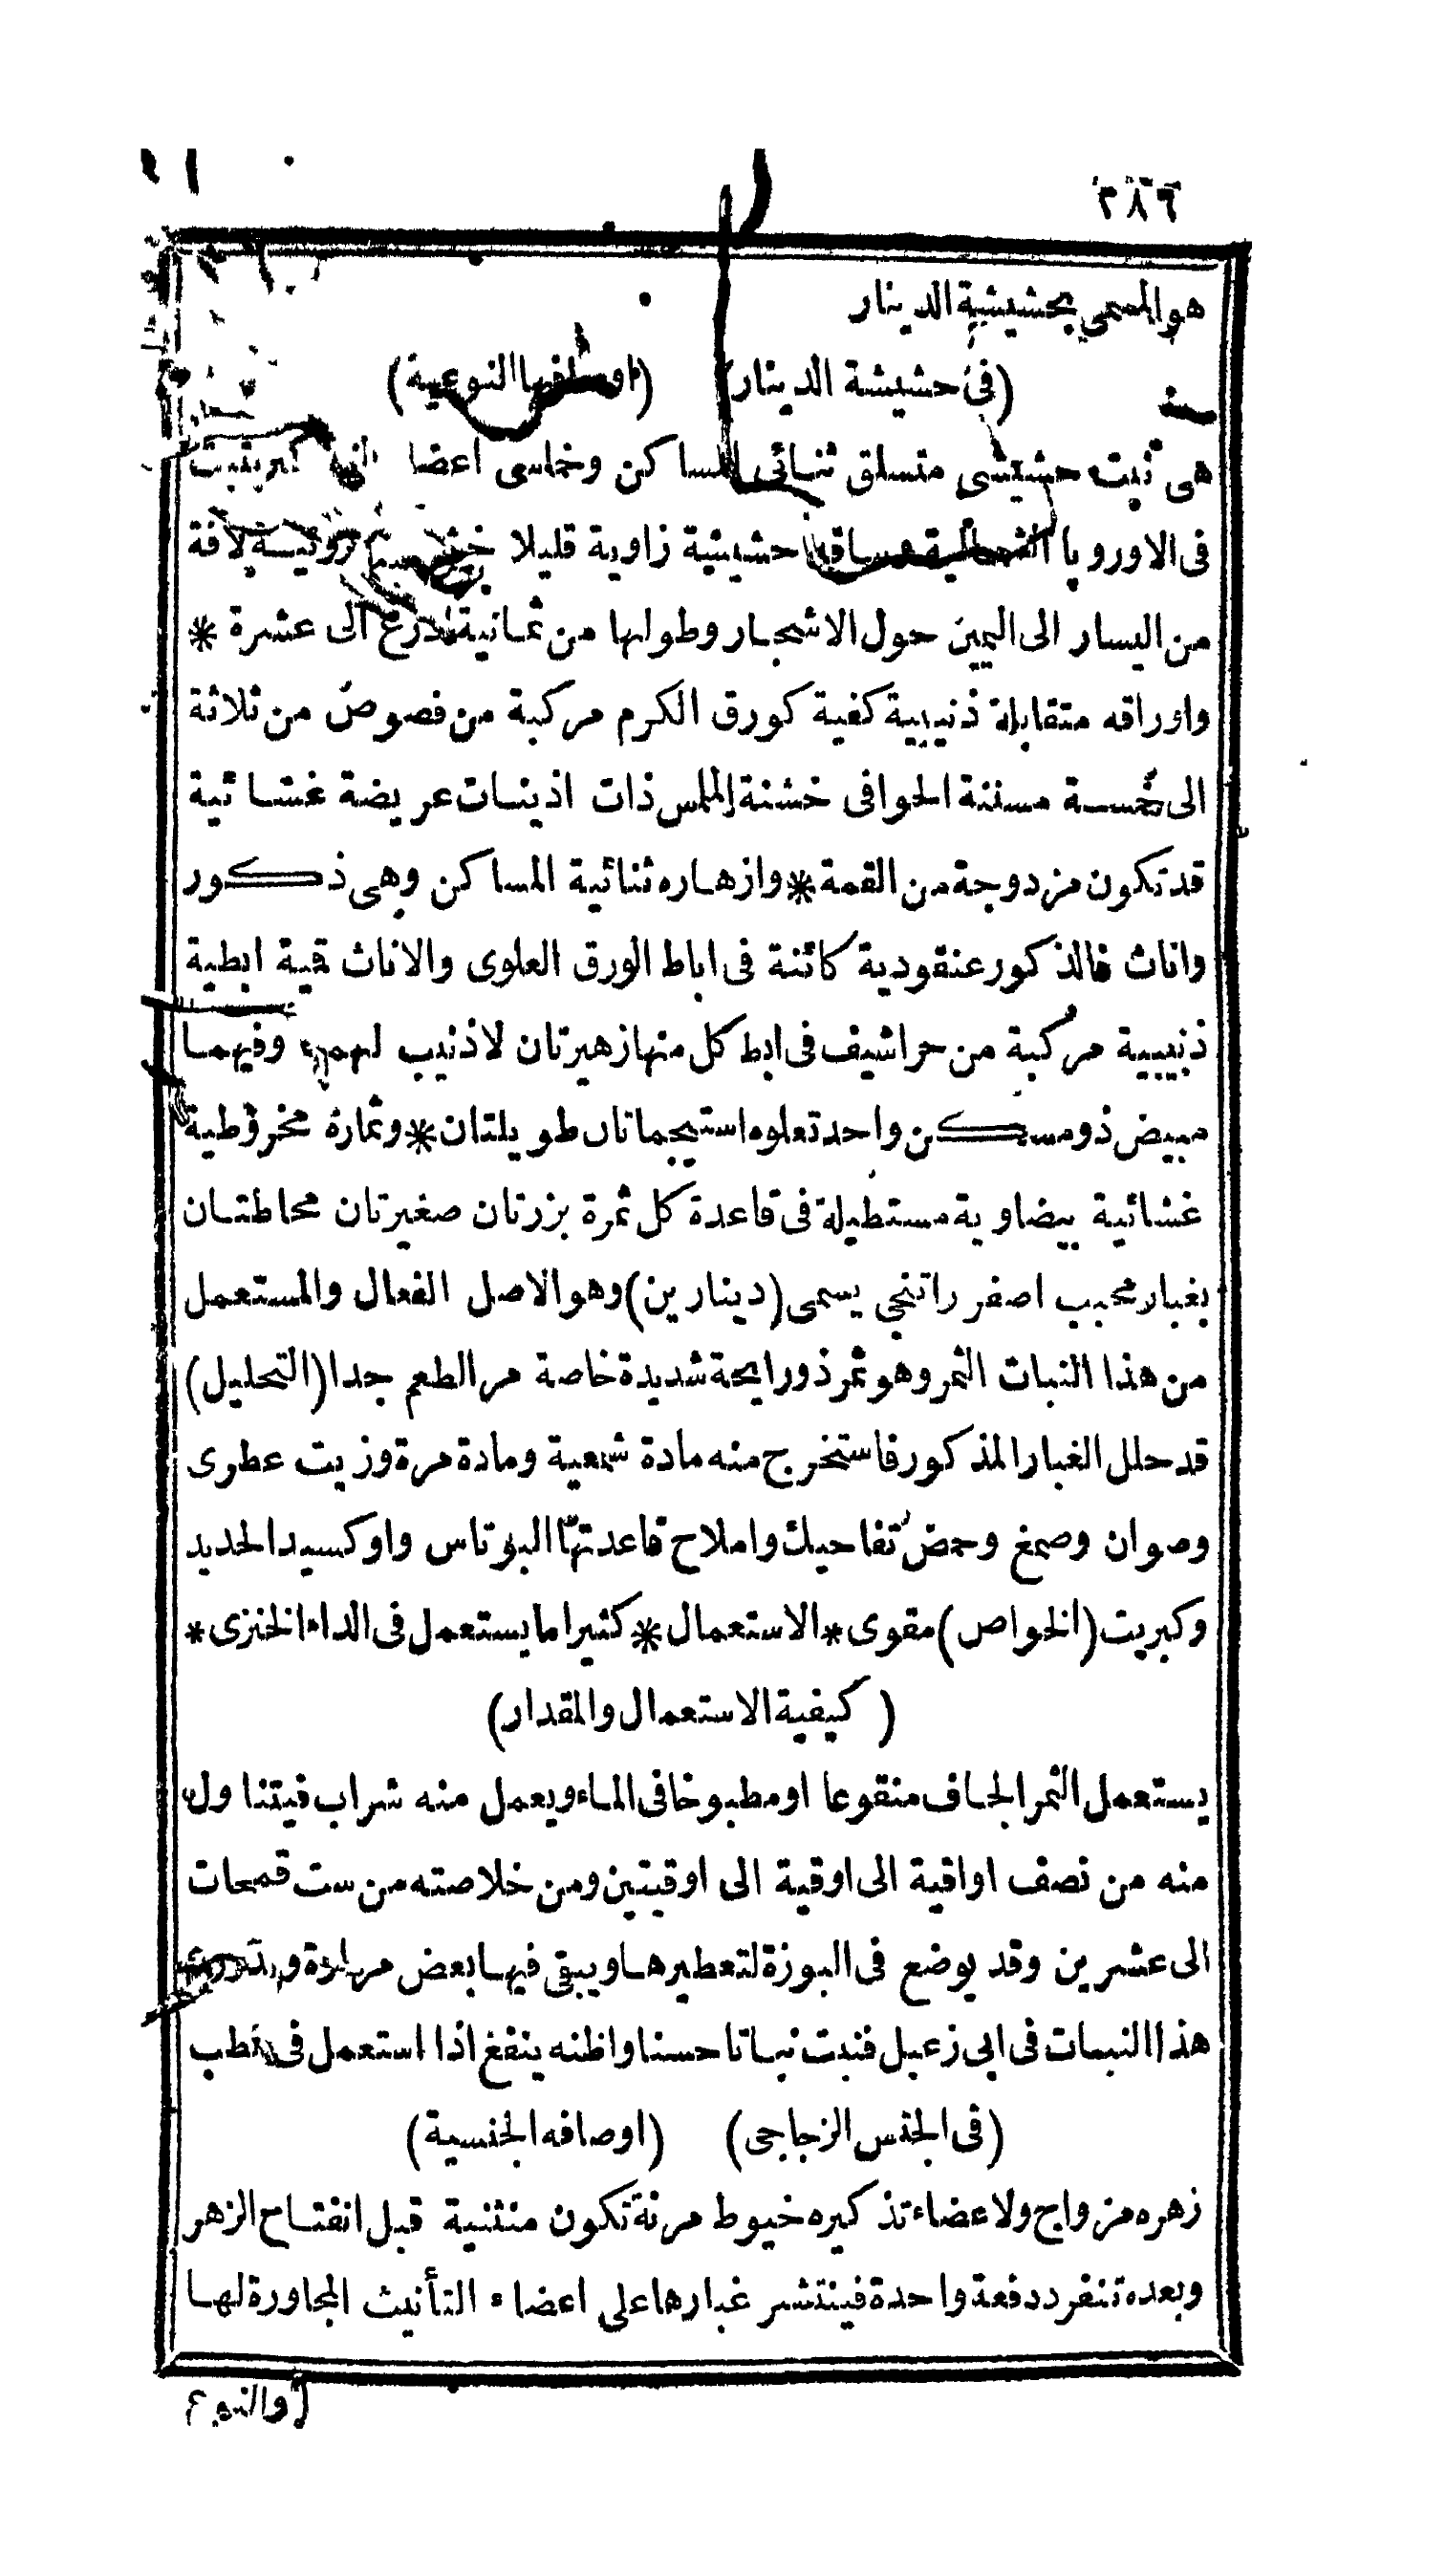 ٢٨٦
هو المسمى بحشيشة الدينار
(فى حشيشة الدينار) (اوصافها النوعية)
هى نبت حشيشى متسلق ثنائى المساكن وخماسى اعضا
فى الاوروپا الشمالية وساقه حشيشية زاوية قليلا لافة
من اليسار الى اليمين حول الاشجار وطولها من ثمانية اذرع الى عشرة *
واوراقه متقابلة ذنيبية كفية كورق الكرم مركبة من فصوص من ثلاثة
الى خمسة مسننة الحوافى خشنة الملمس ذات اذينات عريضة غشائية
قد تكون مزدوجة من القمة * وازهاره ثنائية المساكن وهى ذكور
واناث فالذكور عنقودية كائنة فى اباط الورق العلوى والاناث قمية ابطية
ذنيبية مركبة من حراشيف فى ابط كل منها زهيرتان لا ذنيب لهما وفيهما
مبيض ذو مسكن واحد تعلوه استيجماتان طويلتان * وثماره مخروطية
غشائية بيضاوية مستطيلة فى قاعدة كل ثمرة بزرتان صغيرتان محاطتان
بغبار محبب اصفر راتنجى يسمى (دينارين) وهو الاصل الفعال والمستعمل
من هذا النبات الثمر وهو ثمر ذو رايحة شديدة خاصة مر الطعم جدا (التحليل)
قد حلل الغبار المذكور فاستخرج منه مادة شمعية ومادة مرة وزيت عطرى
وصوان وصمغ وحمض تفاحيك واملاح قاعدتها البوتاس واوكسيد الحديد
وكبريت (الخواص) مقوى * الاستعمال * كثيرا ما يستعمل فى الداء الخنزى *
(كيفية الاستعمال والمقدار)
يستعمل الثمر الجاف منقوعا او مطبوخا فى الماء ويعمل منه شراب فيتناول
منه من نصف اواقية الى اوقية الى اوقيتين ومن خلاصته من ست قمحات
الى عشرين وقد يوضع فى البوزة لتعطيرها ويبقى فيها بعض مرارة
هذا النبات فى ابى زعبل فنبت نباتا حسنا واظنه ينفع اذا استعمل فى الطب
(فى الجنس الزجاجى) (اوصافه الجنسية)
زهره مزواج ولاعضاء تذكيره خيوط مرنة تكون منثنية قبل انفتاح الزهر
وبعده تنفرد دفعة واحدة فينتشر غبارها على اعضاء التأنيث المجاورة لها
والنوع